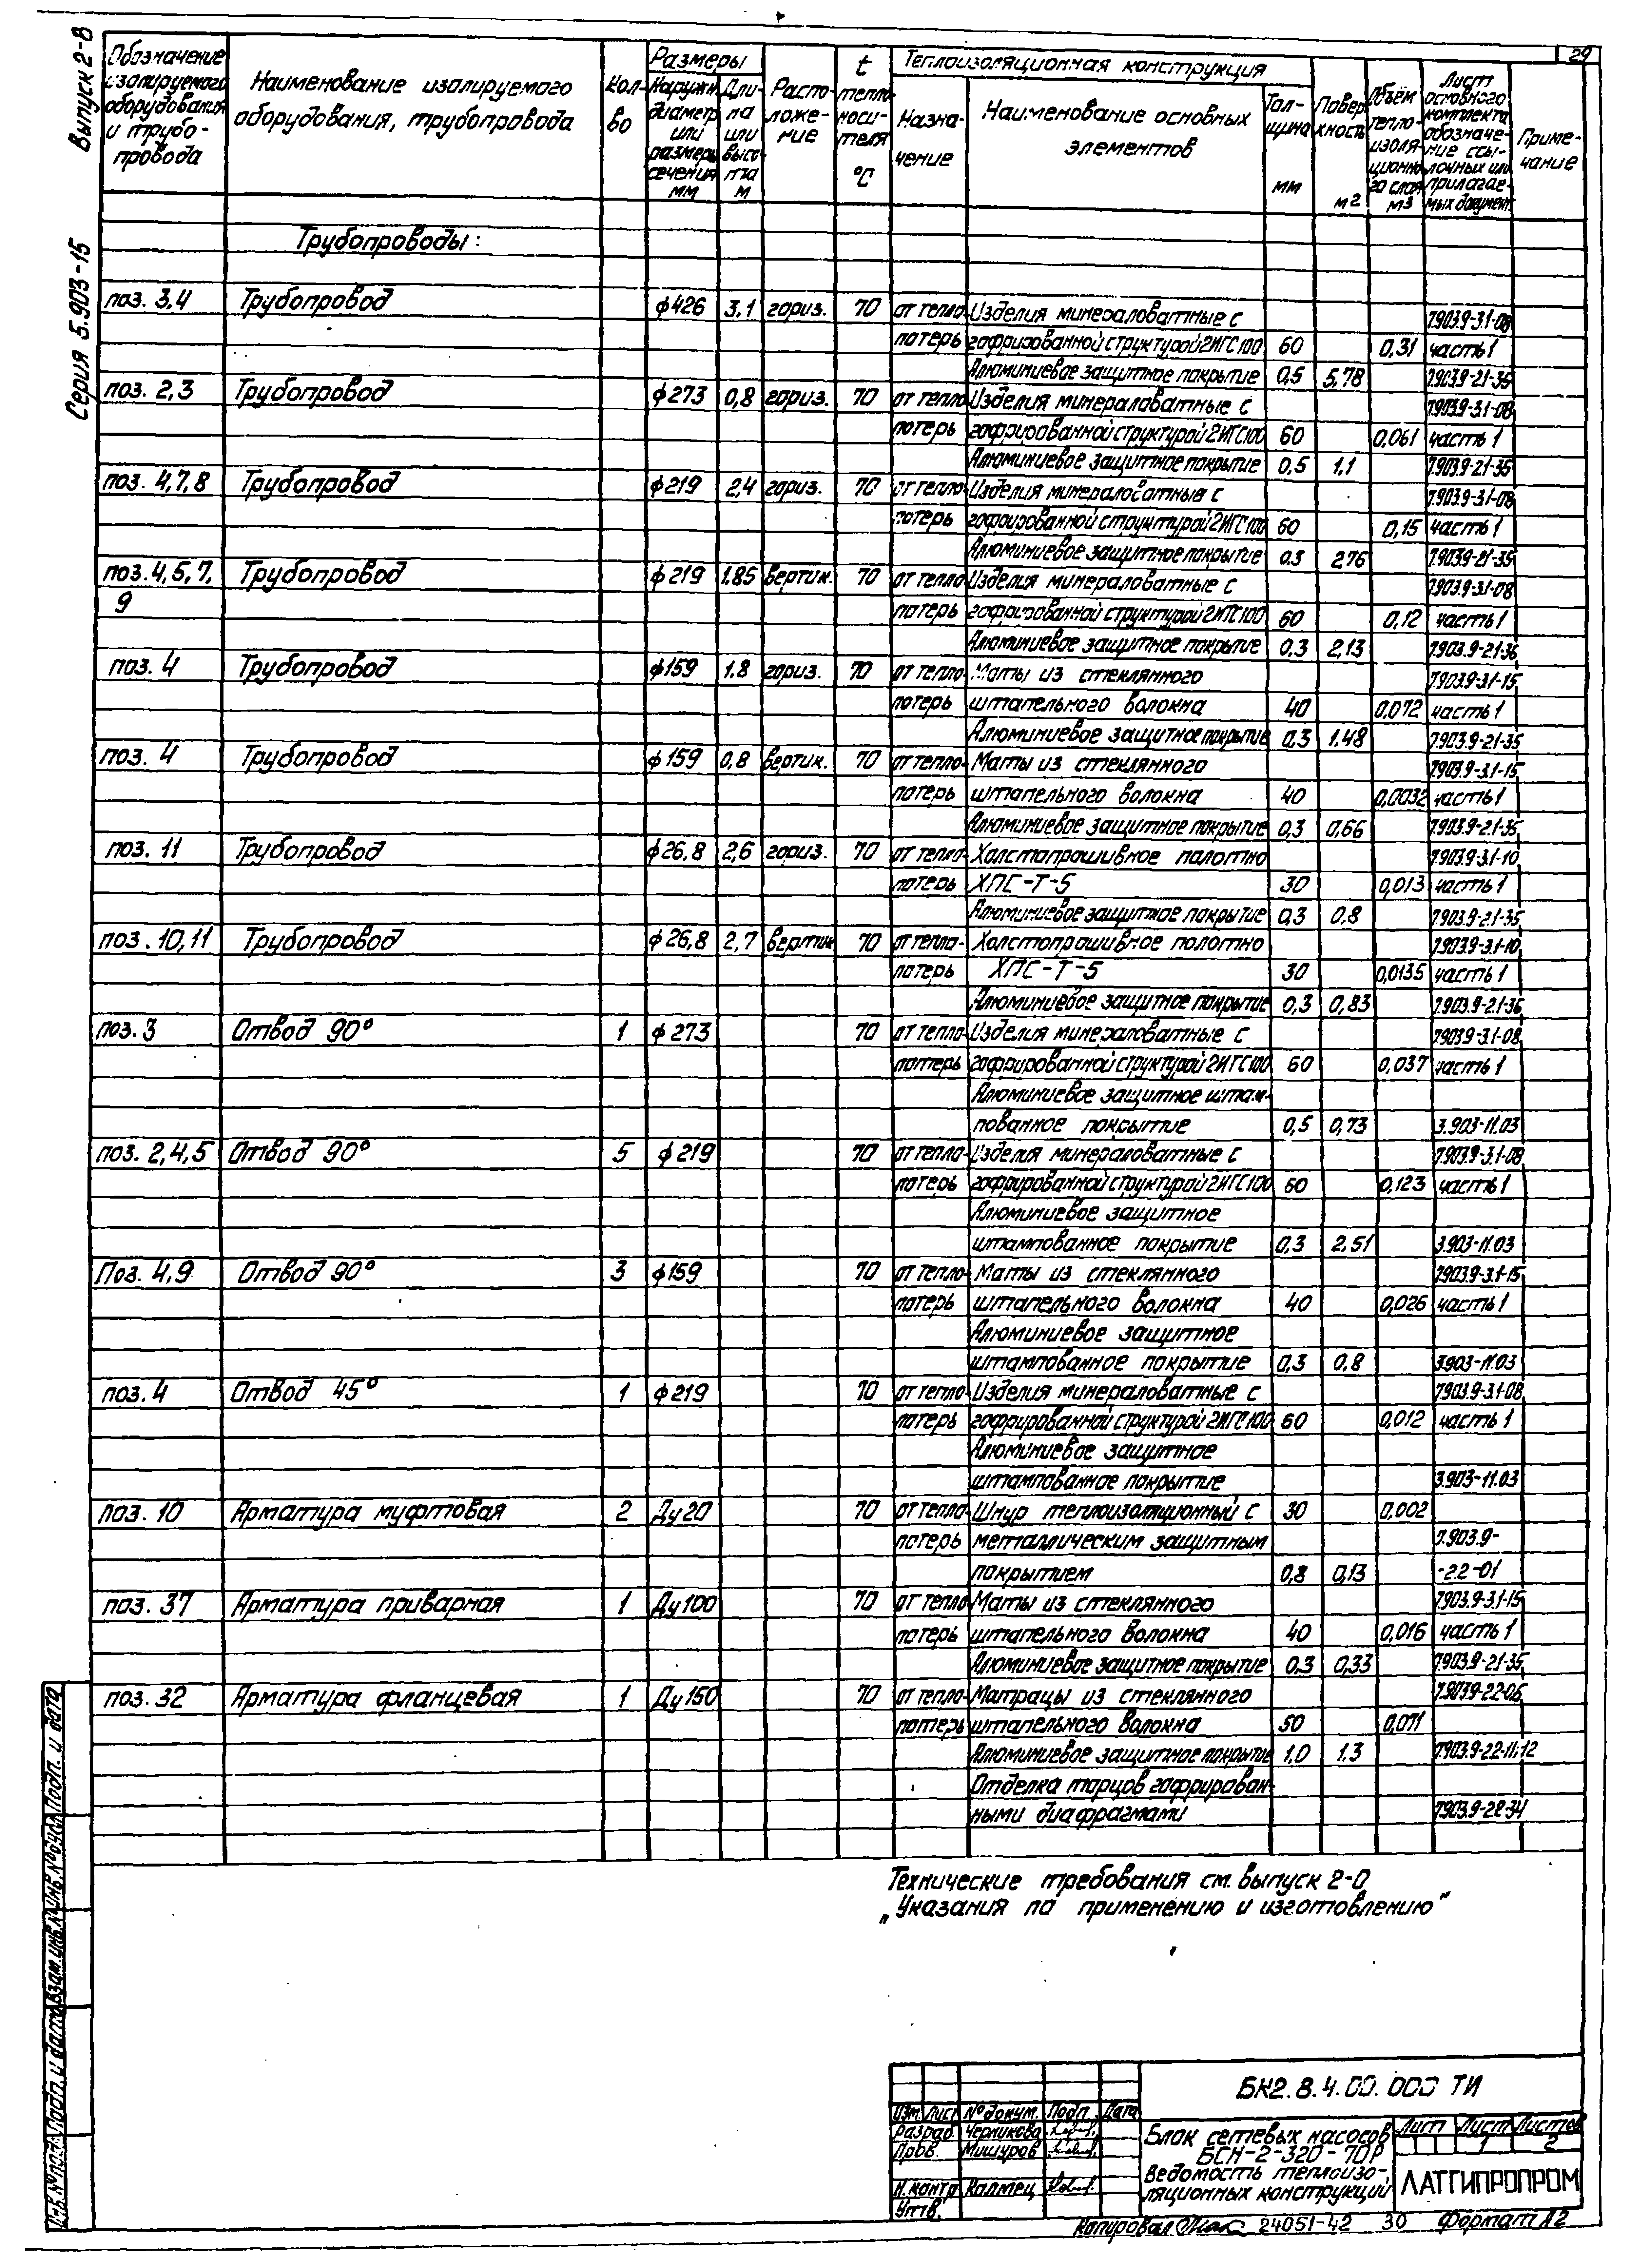 Серия 5.903-15 Выпуск 2-8
29
Обозначение изолируемого оборудования и трубопровода
Наименование изолируемого оборудования, трубопровода
Кол-во
Размеры
Наружн. диаметр или размеры сечения мм
Дли-на или высо-та м
Распо-ложе-ние
t тепло-носи-теля °С
Теплоизоляционная конструкция
Назна-чение
Наименование основных элементов
Тол-щина мм
Повер хность м2
Объём тепло-изоля-ционно го слоя м3
Лист основного комплекта обозначе-ние ссы-лочных или прилагае-мых документ.
Приме-чание
Трубопроводы:
поз. 3,4 Трубопровод ф426 3,1 гориз. 70 от тепло Изделия минераловатные с 7.903.9-3.1-08
потерь гофрированной структурой 2ИГС100 60 0,31 часть 1
Алюминиевое защитное покрытие 0,5 5,78 7.903.9-2.1-35
поз. 2,3 Трубопровод ф273 0,8 гориз. 70 от тепло Изделия минераловатные с 7.903.9-3.1-08
потерь гофрированной структурой 2ИГС100 60 0,061 часть 1
Алюминиевое защитное покрытие 0,5 1,1 7.903.9-2.1-35
поз. 4,7,8 Трубопровод ф219 2,4 гориз. 70 от тепло- Изделия минераловатные с 7.903.9-3.1-08
потерь гофрированной структурой 2ИГС100 60 0,15 часть 1
Алюминиевое защитное покрытие 0,3 2,76 7.903.9-2.1-35
поз. 4,5,7, Трубопровод ф219 1.85 вертик. 70 от тепло Изделия минераловатные с 7.903.9-3.1-08
9 потерь гофрированной структурой 2ИГС100 60 0,12 часть 1
Алюминиевое защитное покрытие 0,3 2,13 7.903.9-2.1-36
поз. 4 Трубопровод ф159 1.8 гориз. 70 от тепло- Маты из стеклянного 7.903.9-3.1-15
потерь штапельного волокна 40 0,072 часть 1
Алюминиевое защитное покрытие 0,3 1.48 7.903.9-2.1-35
поз. 4 Трубопровод ф159 0,8 вертик. 70 от тепло- Маты из стеклянного 7.903.9-3.1-15
потерь штапельного волокна 40 0,0032 часть 1
Алюминиевое защитное покрытие 0,3 0,66 7.903.9-2.1-35
поз. 11 Трубопровод ф26,8 2,6 гориз. 70 от тепло- Холстопрошивное полотно 7.903.9-3.1-10
потерь ХПС-Т-5 30 0,013 часть 1
Алюминиевое защитное покрытие 0,3 0,8 7.903.9-2.1-35
поз. 10,11 Трубопровод ф26,8 2,7 вертик 70 от тепло- Холстопрошивное полотно 7.903.9-3.1-10
потерь ХПС-Т-5 30 0,0135 часть 1
Алюминиевое защитное покрытие 0,3 0,83 7.903.9-2.1-36
поз. 3 Отвод 90° 1 ф273 70 от тепло- Изделия минераловатные с 7.903.9-3.1-08
потерь гофрированной структурой 2ИГС100 60 0,037 часть 1
Алюминиевое защитное штам-
пованное покрытие 0,5 0,73 3.903-11.03
поз. 2,4,5 Отвод 90° 5 ф219 70 от тепло- Изделия минераловатные с 7.903.9-3.1-08
потерь гофрированной структурой 2ИГС100 60 0,123 часть 1
Алюминиевое защитное
штампованное покрытие 0,3 2,51 3.903-11.03
Поз. 4,9 Отвод 90° 3 ф159 70 от тепло- Маты из стеклянного 7.903.9-3.1-15
потерь штапельного волокна 40 0,026 часть 1
Алюминиевое защитное
штампованное покрытие 0,3 0,8 3.903-11.03
поз. 4 Отвод 45° 1 ф219 70 от тепло Изделия минераловатные с 7.903.9-3.1-08
потерь гофрированной структурой 2ИГС100 60 0,012 часть 1
Алюминиевое защитное
штампованное покрытие 3.903-11.03
поз. 10 Арматура муфтовая 2 Ду20 70 от тепло- Шнур теплоизоляционный с 30 0,002
потерь металлическим защитным 7.903.9-
покрытием 0,8 0,13 -2.2-01
поз. 37 Арматура приварная 1 Ду100 70 от тепло Маты из стеклянного 7.903.9-3.1-15
потерь штапельного волокна 40 0,016 часть 1
Алюминиевое защитное покрытие 0.3 0,33 7.903.9-2.1-35
поз. 32 Арматура фланцевая 1 Ду150 70 от тепло- Матрацы из стеклянного 7.903.9-2.2-06
потерь штапельного волокна 50 0,071
Алюминиевое защитное покрытие 1.0 1.3 7.903.9-2.2-11,12
Отделка торцов гофрирован-
ными диафрагмами 7.903.9-2.2-34
Технические требования см. выпуск 2-0
„Указания по применению и изготовлению"
Инв.№подл. Подп. и дата Взам.инв.№ Инв.№дубл. Подп. и дата
БК2.8.4.00.000 ТИ
Изм. Лист № докум. Подп. Дата
Разраб. Черникова
Пров. Мишуров
Н.контр Калмец
Утв.
Блок сетевых насосов
БСН-2-320-70Р
Ведомость теплоизо-
ляционных конструкций
Лит Лист Листов
1 2
ЛАТГИПРОПРОМ
Копировал 24051-42 30 Формат А2